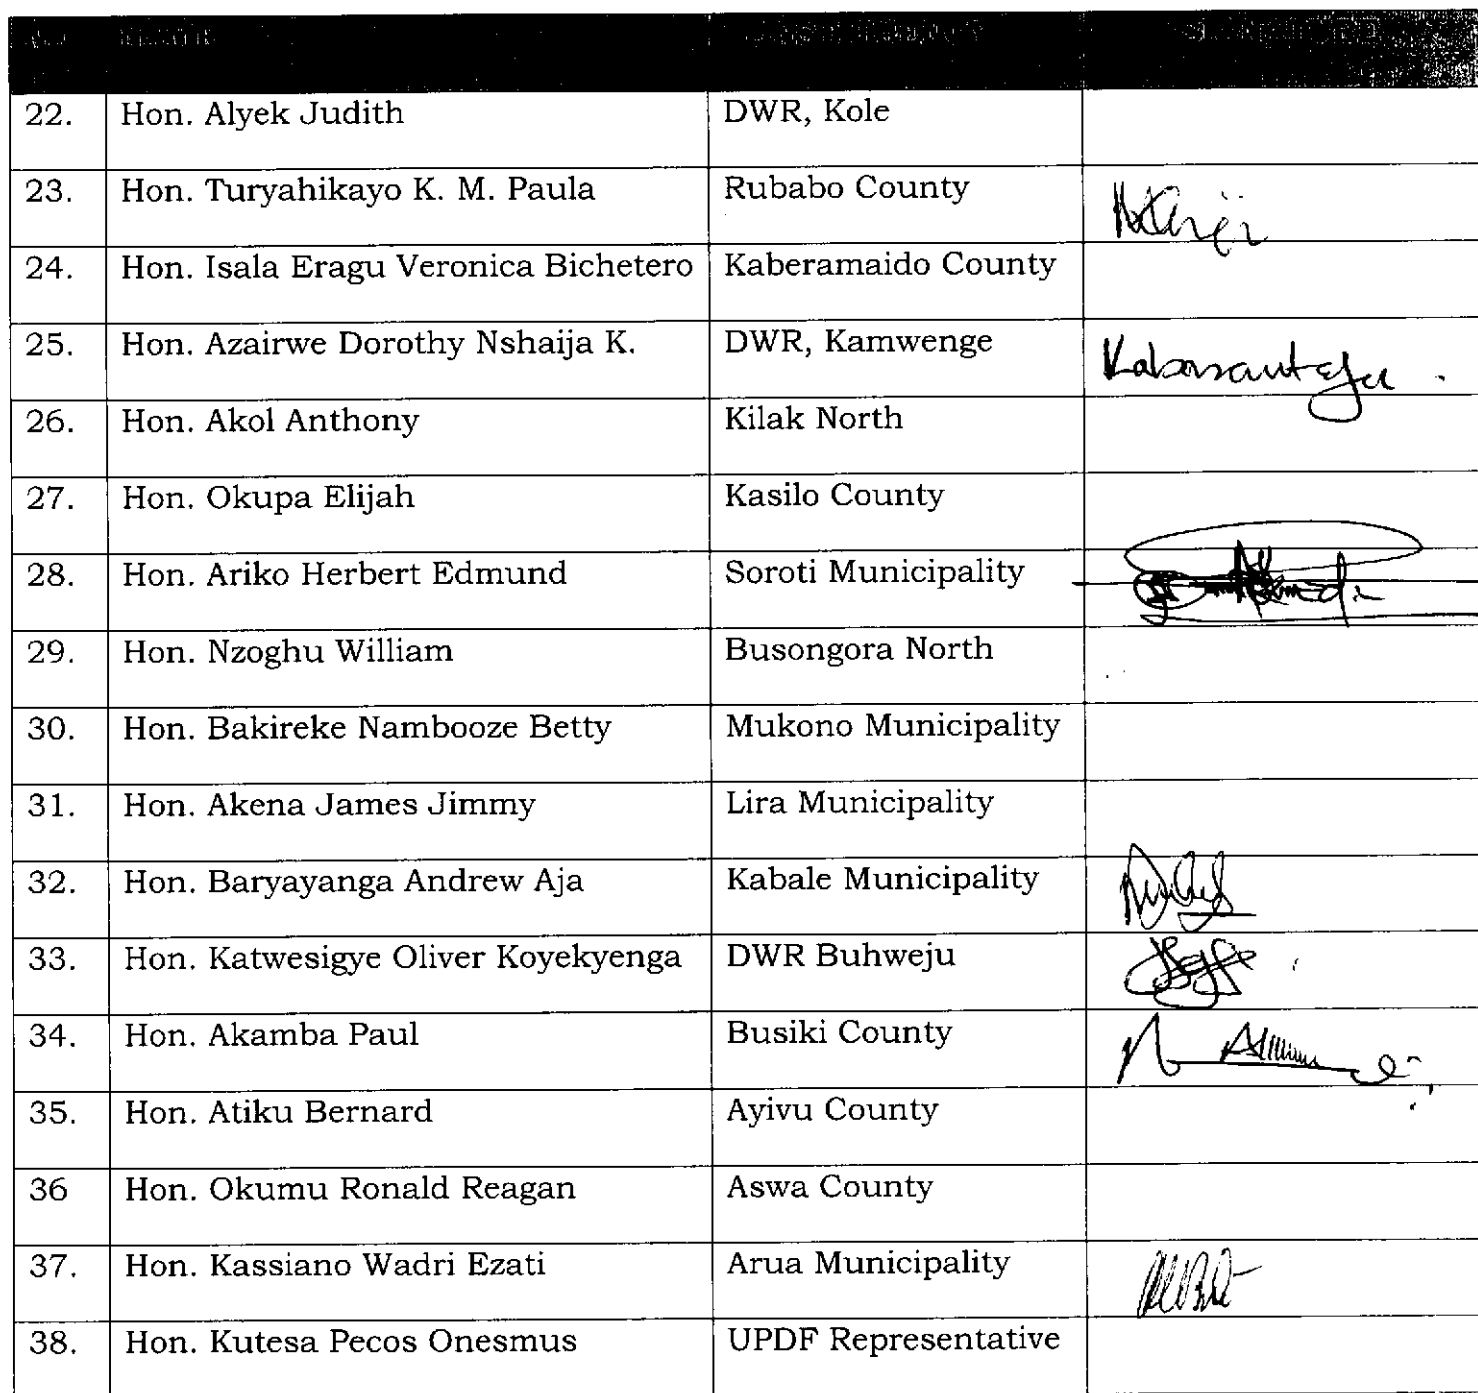 22. Hon. Alyek Judith DWR, Kole
23. Hon. Turyahikayo K. M. Paula Rubabo County
24. Hon. Isala Eragu Veronica Bichetero Kaberamaido County
25. Hon. Azairwe Dorothy Nshaija K. DWR, Kamwenge
26. Hon. Akol Anthony Kilak North
27. Hon. Okupa Elijah Kasilo County
28. Hon. Ariko Herbert Edmund Soroti Municipality
29. Hon. Nzoghu William Busongora North
30. Hon. Bakireke Nambooze Betty Mukono Municipality
31. Hon. Akena James Jimmy Lira Municipality
32. Hon. Baryayanga Andrew Aja Kabale Municipality
33. Hon. Katwesigye Oliver Koyekyenga DWR Buhweju
34. Hon. Akamba Paul Busiki County
35. Hon. Atiku Bernard Ayivu County
36 Hon. Okumu Ronald Reagan Aswa County
37. Hon. Kassiano Wadri Ezati Arua Municipality
38. Hon. Kutesa Pecos Onesmus UPDF Representative